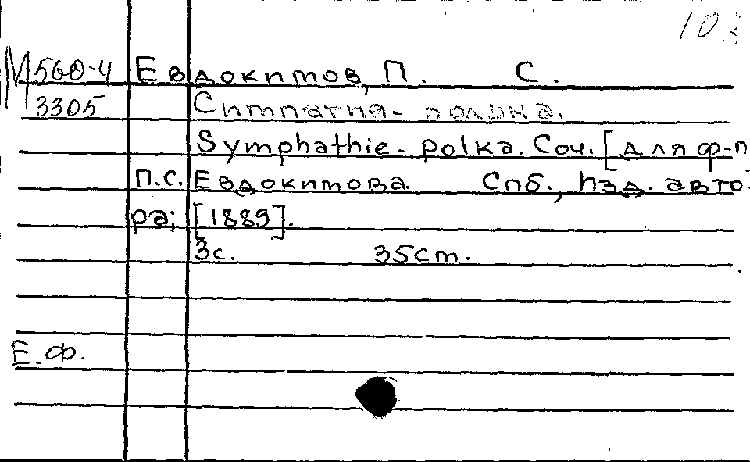 103
М 560-4 Евдокимов, П. С.
3305 Симпатия - полька.
Symphathie - polka. Соч. [для ф-п
П.С. Евдокимова Спб., Изд. авто-
ра; [1889].
3с. 35см.
Е.Ф.